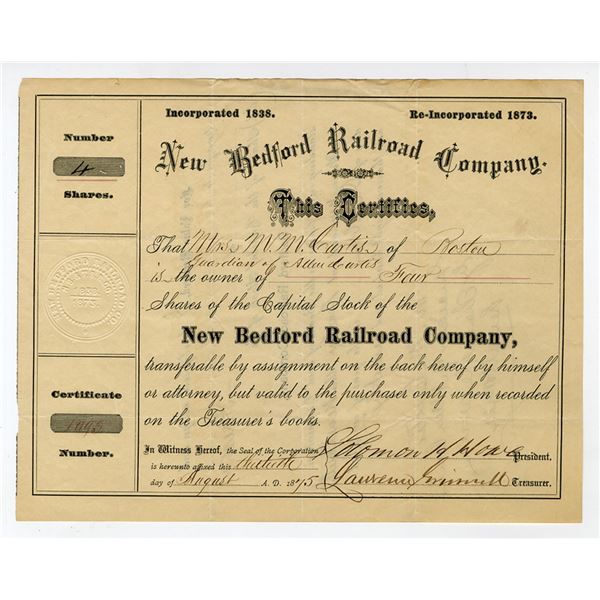 Incorporated 1838. Re-Incorporated 1873.
New Bedford Railroad Company.
This Certifies,
That Mrs. M. M. Curtis of Boston
Guardian of Allen Curtis
is the owner of Four
Shares of the Capital Stock of the
New Bedford Railroad Company,
transferable by assignment on the back hereof by himself
or attorney, but valid to the purchaser only when recorded
on the Treasurer's books.
In Witness Hereof, the Seal of the Corporation
is hereunto affixed this
day of August A. D. 1875
Solomon President.
Lawrence Grinnell Treasurer.
Number
4
Shares.
NEW BEDFORD RAILROAD CO.
1838
1873
Certificate
1095
Number.